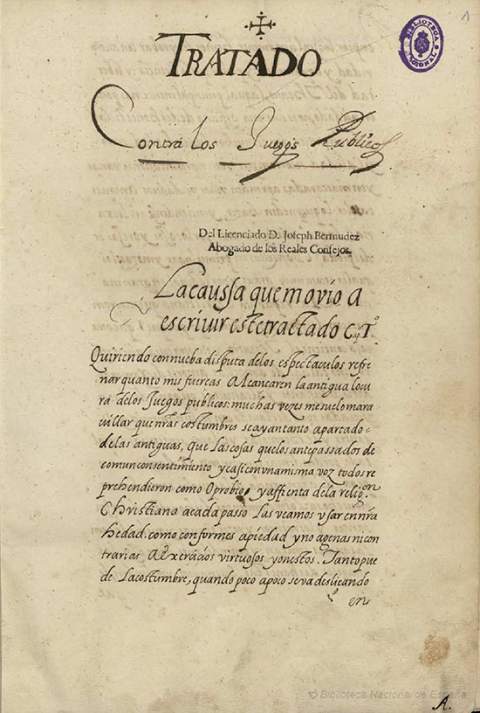 1
BIBLIOTECA NACIONAL
TRATADO
Contra los Juegos Publicos
Del Licenciado D. Joseph Bermudez
Abogado de los Reales Consejos.
La caussa que movio a
escrivir este tractado Cap. 1º
Quiriendo con nueba disputa de los espectaculos refre
nar quanto mis fuercas Alcancaren la antigua locu
ra de los Juegos publicos: muchas vezes me suelo mara
villar que nras costumbres se ayan tanto apartado
de las antiguas, Que las cosas que los antepassados de
comun consentimiento y casi con una misma voz todos re
prehendieron como Oprobio, y affrenta de la religion
Christiana a cada passo las veamos usar en nra
hedad. como conformes a piedad y no agenas ni con
trarias A Exercicios virtuosos y onestos. Tanto pue
de La costumbre, quando poco a poco se va deslicando
en
© Biblioteca Nacional de España
A.